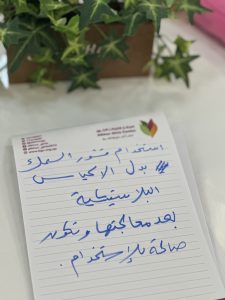 استخدام قشور السمك
بدل الاكياس
البلاستيكية
بعد معالجتها وتكون
صالحة للإستخدام.